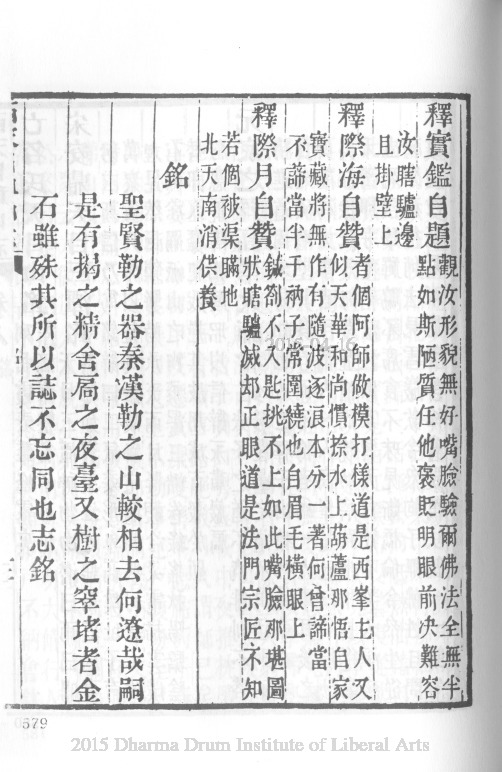 釋實鑑自題觀汝形貌無好嘴臉驗爾佛法全無半
點如斯陋質任他褒貶明眼前決難容
汝瞎驢邊
且掛壁上
釋際海自贊者個阿師做模打樣道是西峯主人又
似天華和尚慣捺水上葫蘆那悟自家
寶藏將無作有隨波逐浪本分一著何曾諦當
不諦當半千衲子常圍繞也自眉毛橫眼上
釋際月自贊鍼劄不入匙挑不上如此嘴臉那堪圖
狀瞎驢滅却正眼道是法門宗匠不知
若個被渠瞞地
北天南消供養
銘
聖賢勒之器秦漢勒之山較相去何遼哉嗣
是有揭之精舍扃之夜臺又樹之窣堵者金
石雖殊其所以誌不忘同也志銘
0579
2015-04-16
2015 Dharma Drum Institute of Liberal Arts